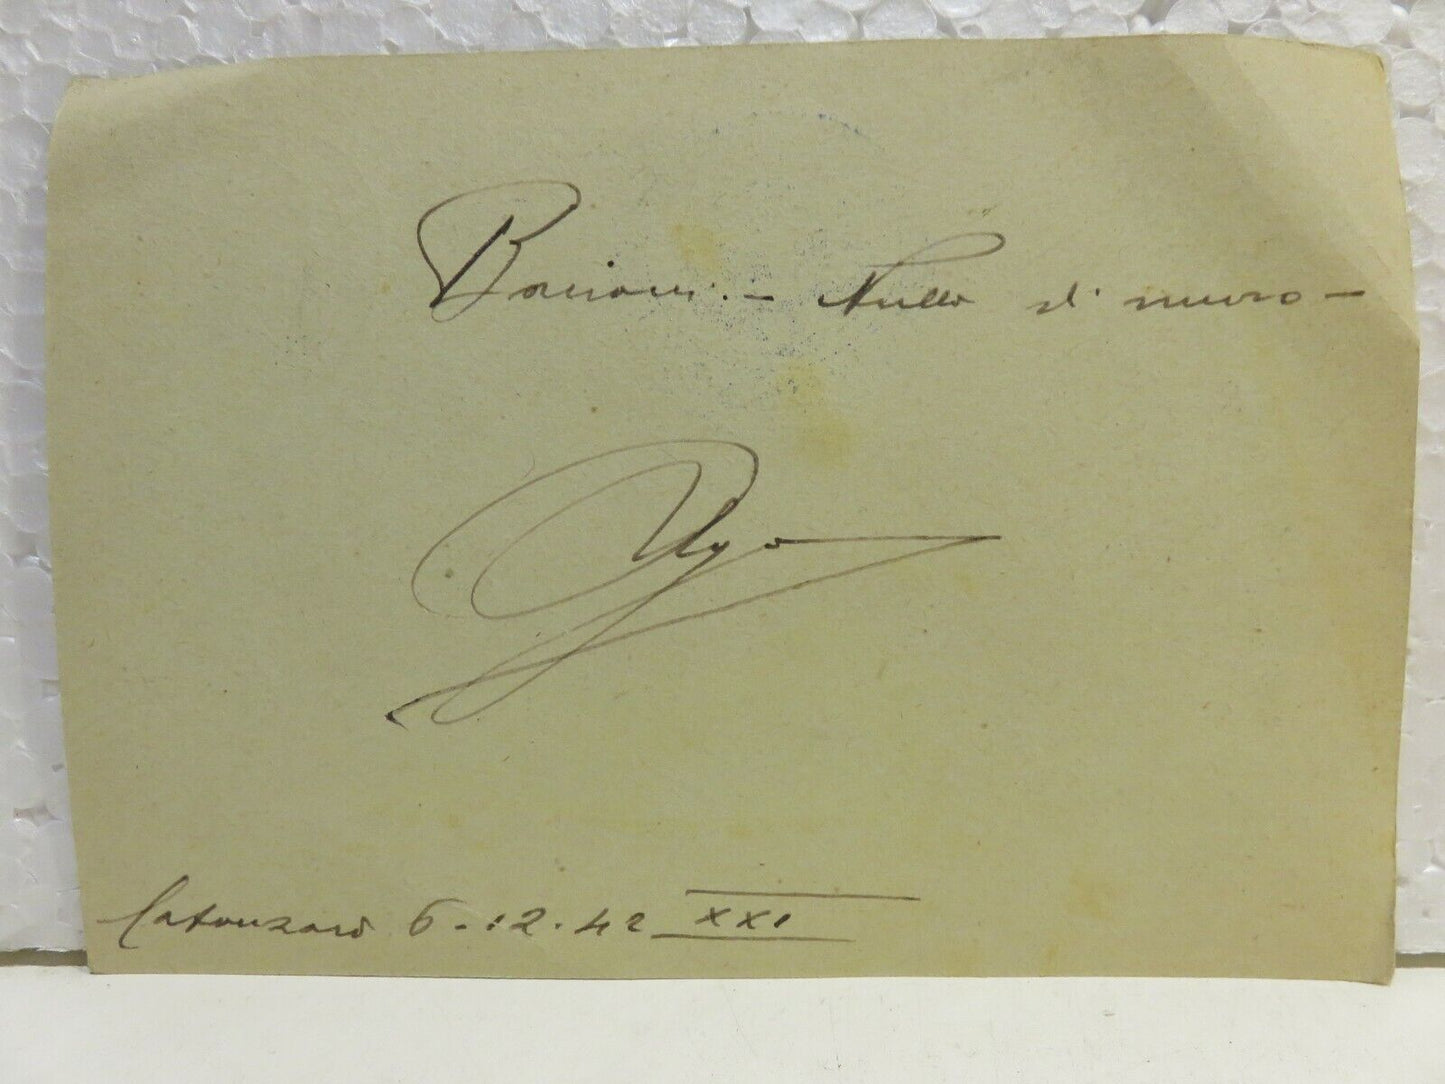 Bacioni. - Nulla di nuovo -
Ugo
Catanzaro 6-12-42 XXI